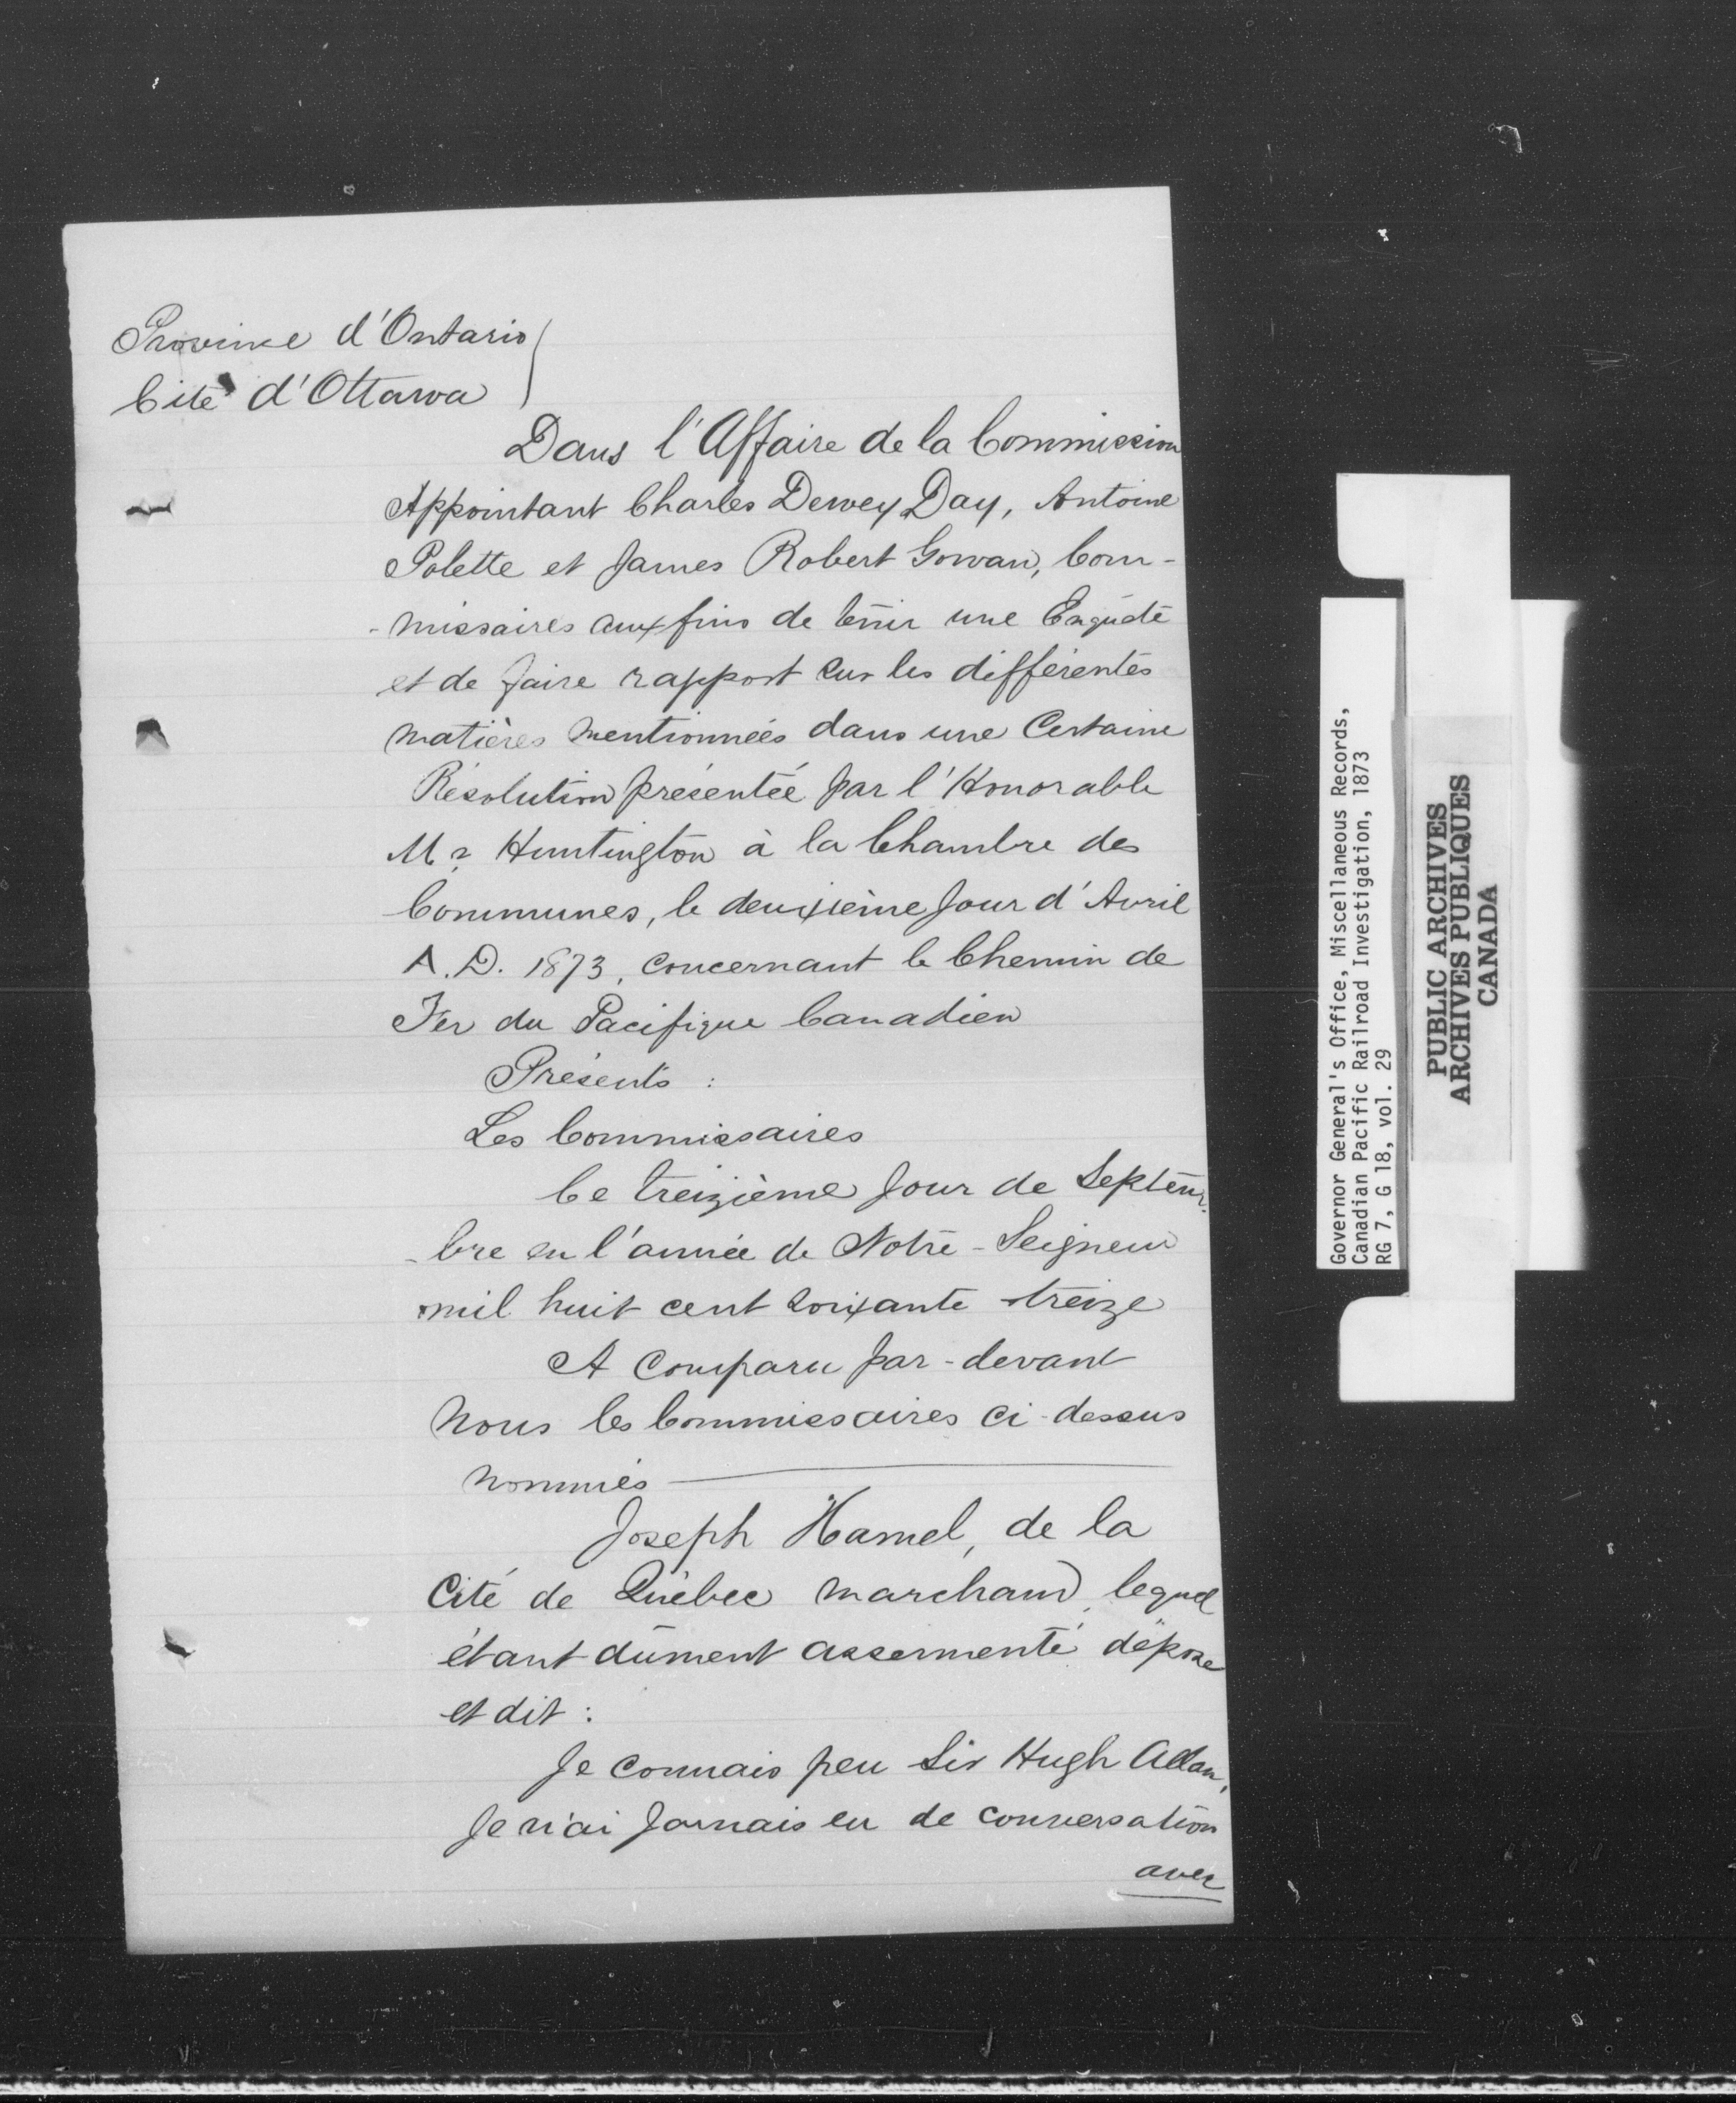 Province d'Ontario
Cité d'Ottawa
Dans l'Affaire de la Commission
Appointant Charles Dewey Day, Antoine
Polette et James Robert Gowan, Com-
-missaires aux fins de tenir une Enquête
et de faire rapport sur les différentes
matières mentionnées dans une Certaine
Résolution présentée par l'Honorable
Mr Huntington à la Chambre des
Communes, le deuxième Jour d'Avril
A.D. 1873, concernant le Chemin de
Fer du Pacifique Canadien
Présents :
Les Commissaires
Ce treizième Jour de Septem-
-bre en l'année de Notre-Seigneur
mil huit cent soixante-treize
A Comparu par-devant
Nous les Commissaires ci-dessus
nommés
Joseph Hamel, de la
Cité de Québec marchand, lequel
étant dûment assermenté dépose
et dit :
Je connais peu Sir Hugh Allan,
Je n'ai Jamais eu de conversation
avec
Governor General's Office, Miscellaneous Records,
Canadian Pacific Railroad Investigation, 1873
RG 7, G 18, vol. 29
PUBLIC ARCHIVES
ARCHIVES PUBLIQUES
CANADA